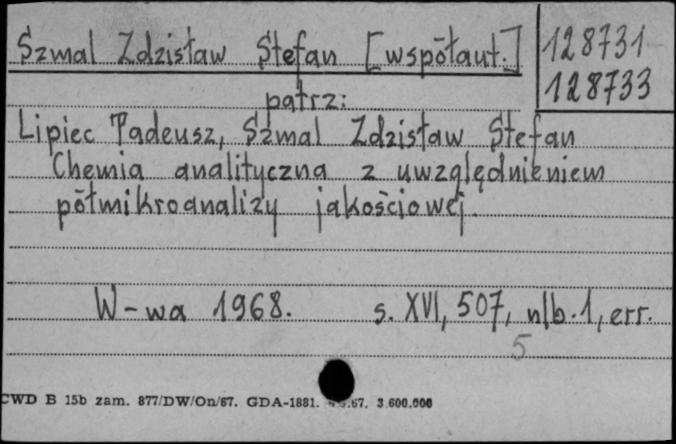 Szmal Zdzisław Stefan [współaut.] 128731
128733
patrz:
Lipiec Tadeusz, Szmal Zdzisław Stefan
Chemia analityczna z uwzględnieniem
półmikroanalizy jakościowej.
W-wa 1968. s. XVI, 507, nlb. 1, err.
5
CWD B 15b zam. 877/DW/On/67. GDA-1881. .67. 3.600.000